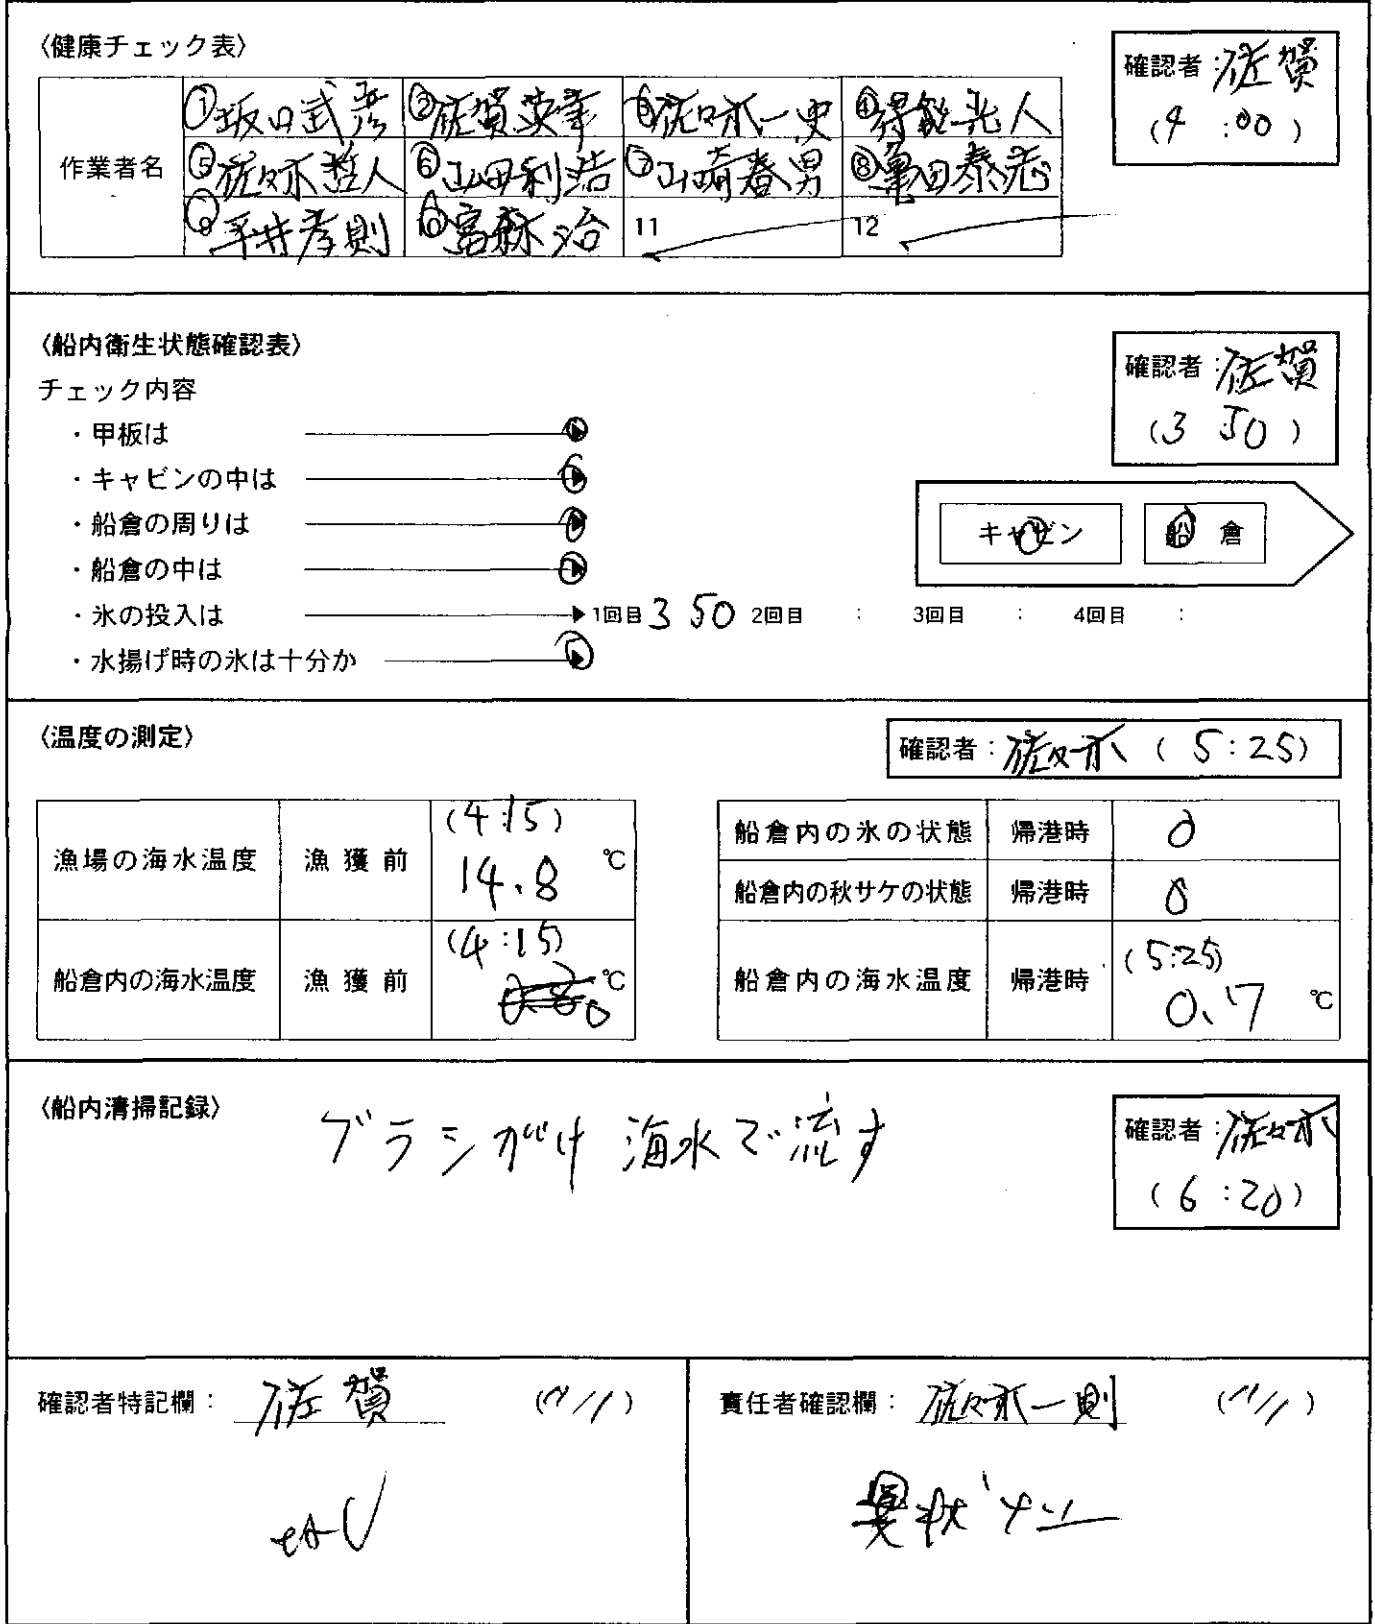 〈健康チェック表〉
確認者:佐賀
(4:00)
作業者名
①坂口武彦 ②佐賀英幸 ③佐々木一史 ④得能光人
⑤佐々木哲人 ⑥山田利浩 ⑦山崎春男 ⑧亀田泰志
⑨平井孝則 ⑩富森治 11 12
〈船内衛生状態確認表〉
確認者:佐賀
(3 50)
チェック内容
・甲板は
・キャビンの中は
・船倉の周りは
・船倉の中は
キャビン 船倉
・氷の投入は 1回目 3 50 2回目 : 3回目 : 4回目 :
・水揚げ時の氷は十分か
〈温度の測定〉
確認者:佐々木 (5:25)
漁場の海水温度 漁獲前 (4:15)
14.8 ℃
船倉内の海水温度 漁獲前 (4:15)
℃
船倉内の氷の状態 帰港時 0
船倉内の秋サケの状態 帰港時 0
船倉内の海水温度 帰港時 (5:25)
0.7 ℃
〈船内清掃記録〉
ブラシがけ 海水で流す
確認者:佐々木
(6:20)
確認者特記欄: 佐賀 (11/1)
責任者確認欄: 佐々木一則 (11/1)
異状ナシ